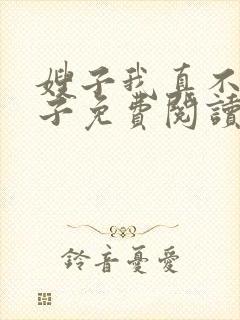 嫂子我真不
子免費閱讀
鈴音憂愛